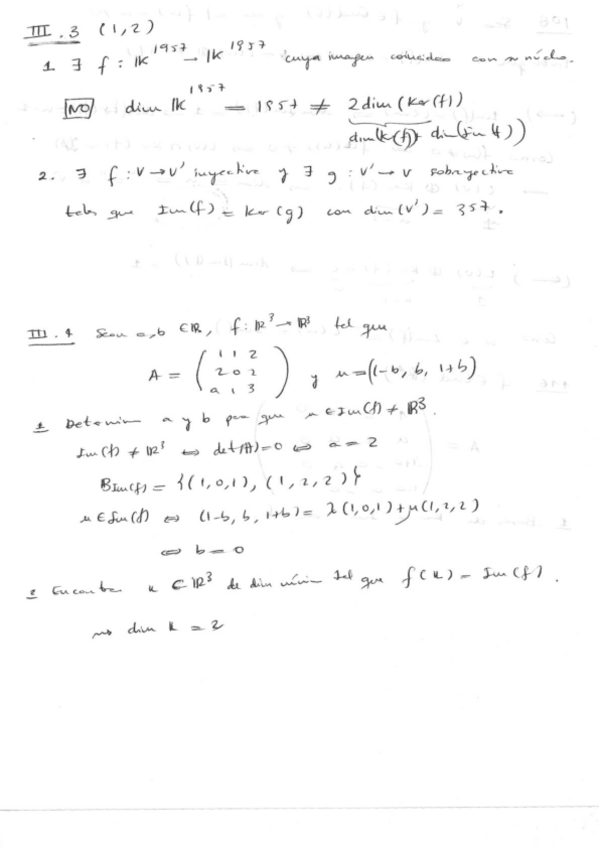 III.3 (1,2)
1. ∃ f: K^1957 → K^1957 cuya imagen coincidea con su núcleo.
[NO] dim K^1957 = 1957 ≠ 2dim(Ker(f))
dim(K(f)) + dim(Im(f))
2. ∃ f: V→V' inyectiva y ∃ g: V'→V sobreyectiva
tales que Im(f) = Ker(g) con dim(V') = 357.
III.4 Sean a,b ∈ℝ, f: ℝ³→ℝ³ tal que
A = ( 1 1 2
2 0 2
a 1 3 ) y u=(1-b, b, 1+b)
1 Determin a y b para que u ∈ Im(f) ≠ ℝ³.
Im(f) ≠ ℝ³ ⇔ det(A)=0 ⇔ a = 2
B_Im(f) = {(1,0,1), (1,2,2)}
u ∈ Im(f) ⇔ (1-b, b, 1+b) = λ(1,0,1)+μ(1,2,2)
⇔ b = 0
2 Encontra K ⊂ ℝ³ de dim mínim tal que f(K) = Im(f).
⇝ dim K = 2